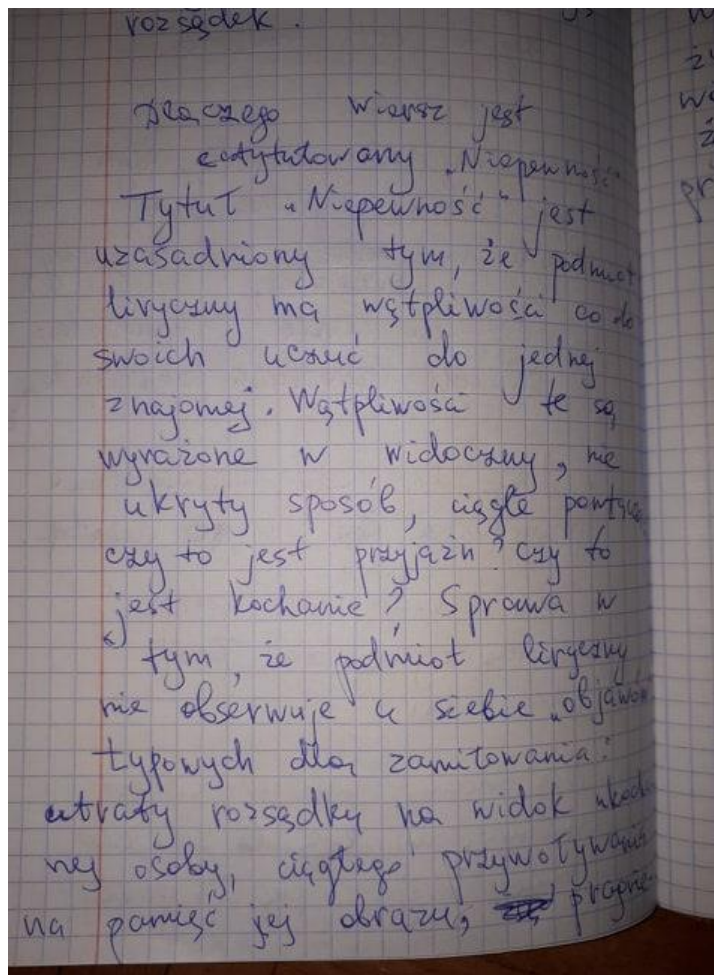 rozsądek.
Dlaczego wiersz jest
zatytułowany „Niepewność"
Tytuł „Niepewność" jest
uzasadniony tym, że podmiot
liryczny ma wątpliwości co do
swoich uczuć do jednej
znajomej. Wątpliwości te są
wyrażone w widoczny, nie
ukryty sposób, ciągle
czy to jest przyjaźń? czy to
jest kochanie? Sprawa w
tym, że podmiot liryczny
nie obserwuje u siebie „objawów
typowych dla zamiłowania:
utraty rozsądku na widok ukocha
nej osoby, ciągłego przywoływania
na pamięć jej obrazu, pragnie-